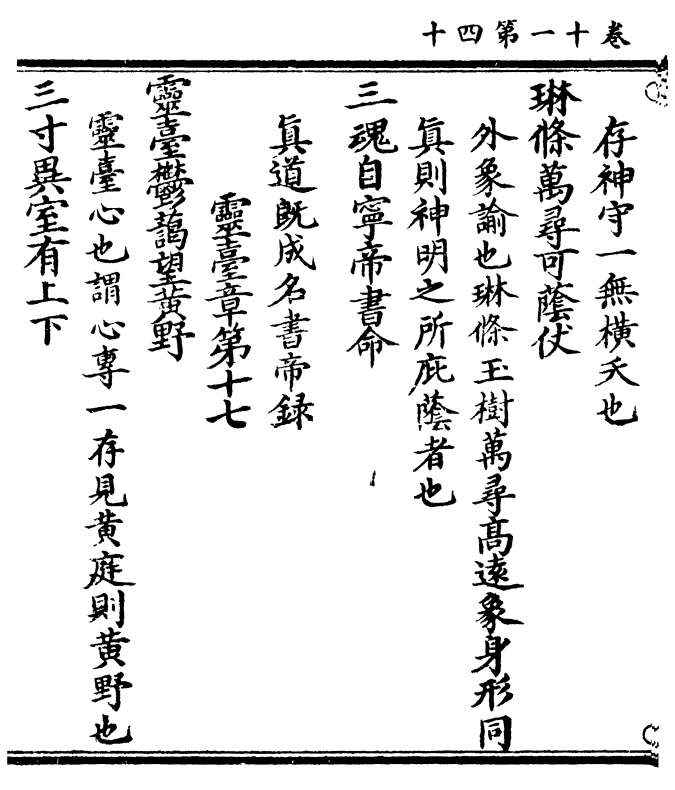 卷十一第四十
存神守一無橫夭也
琳條萬尋可蔭仗
外象諭也琳條玉樹萬尋高遠象身形同
眞則神明之所庇蔭者也
三魂自寧帝書命
眞道既成名書帝録
靈臺章第十七
靈臺鬱藹望黃野
靈臺心也謂心專一存見黃庭則黃野也
三寸異室有上下